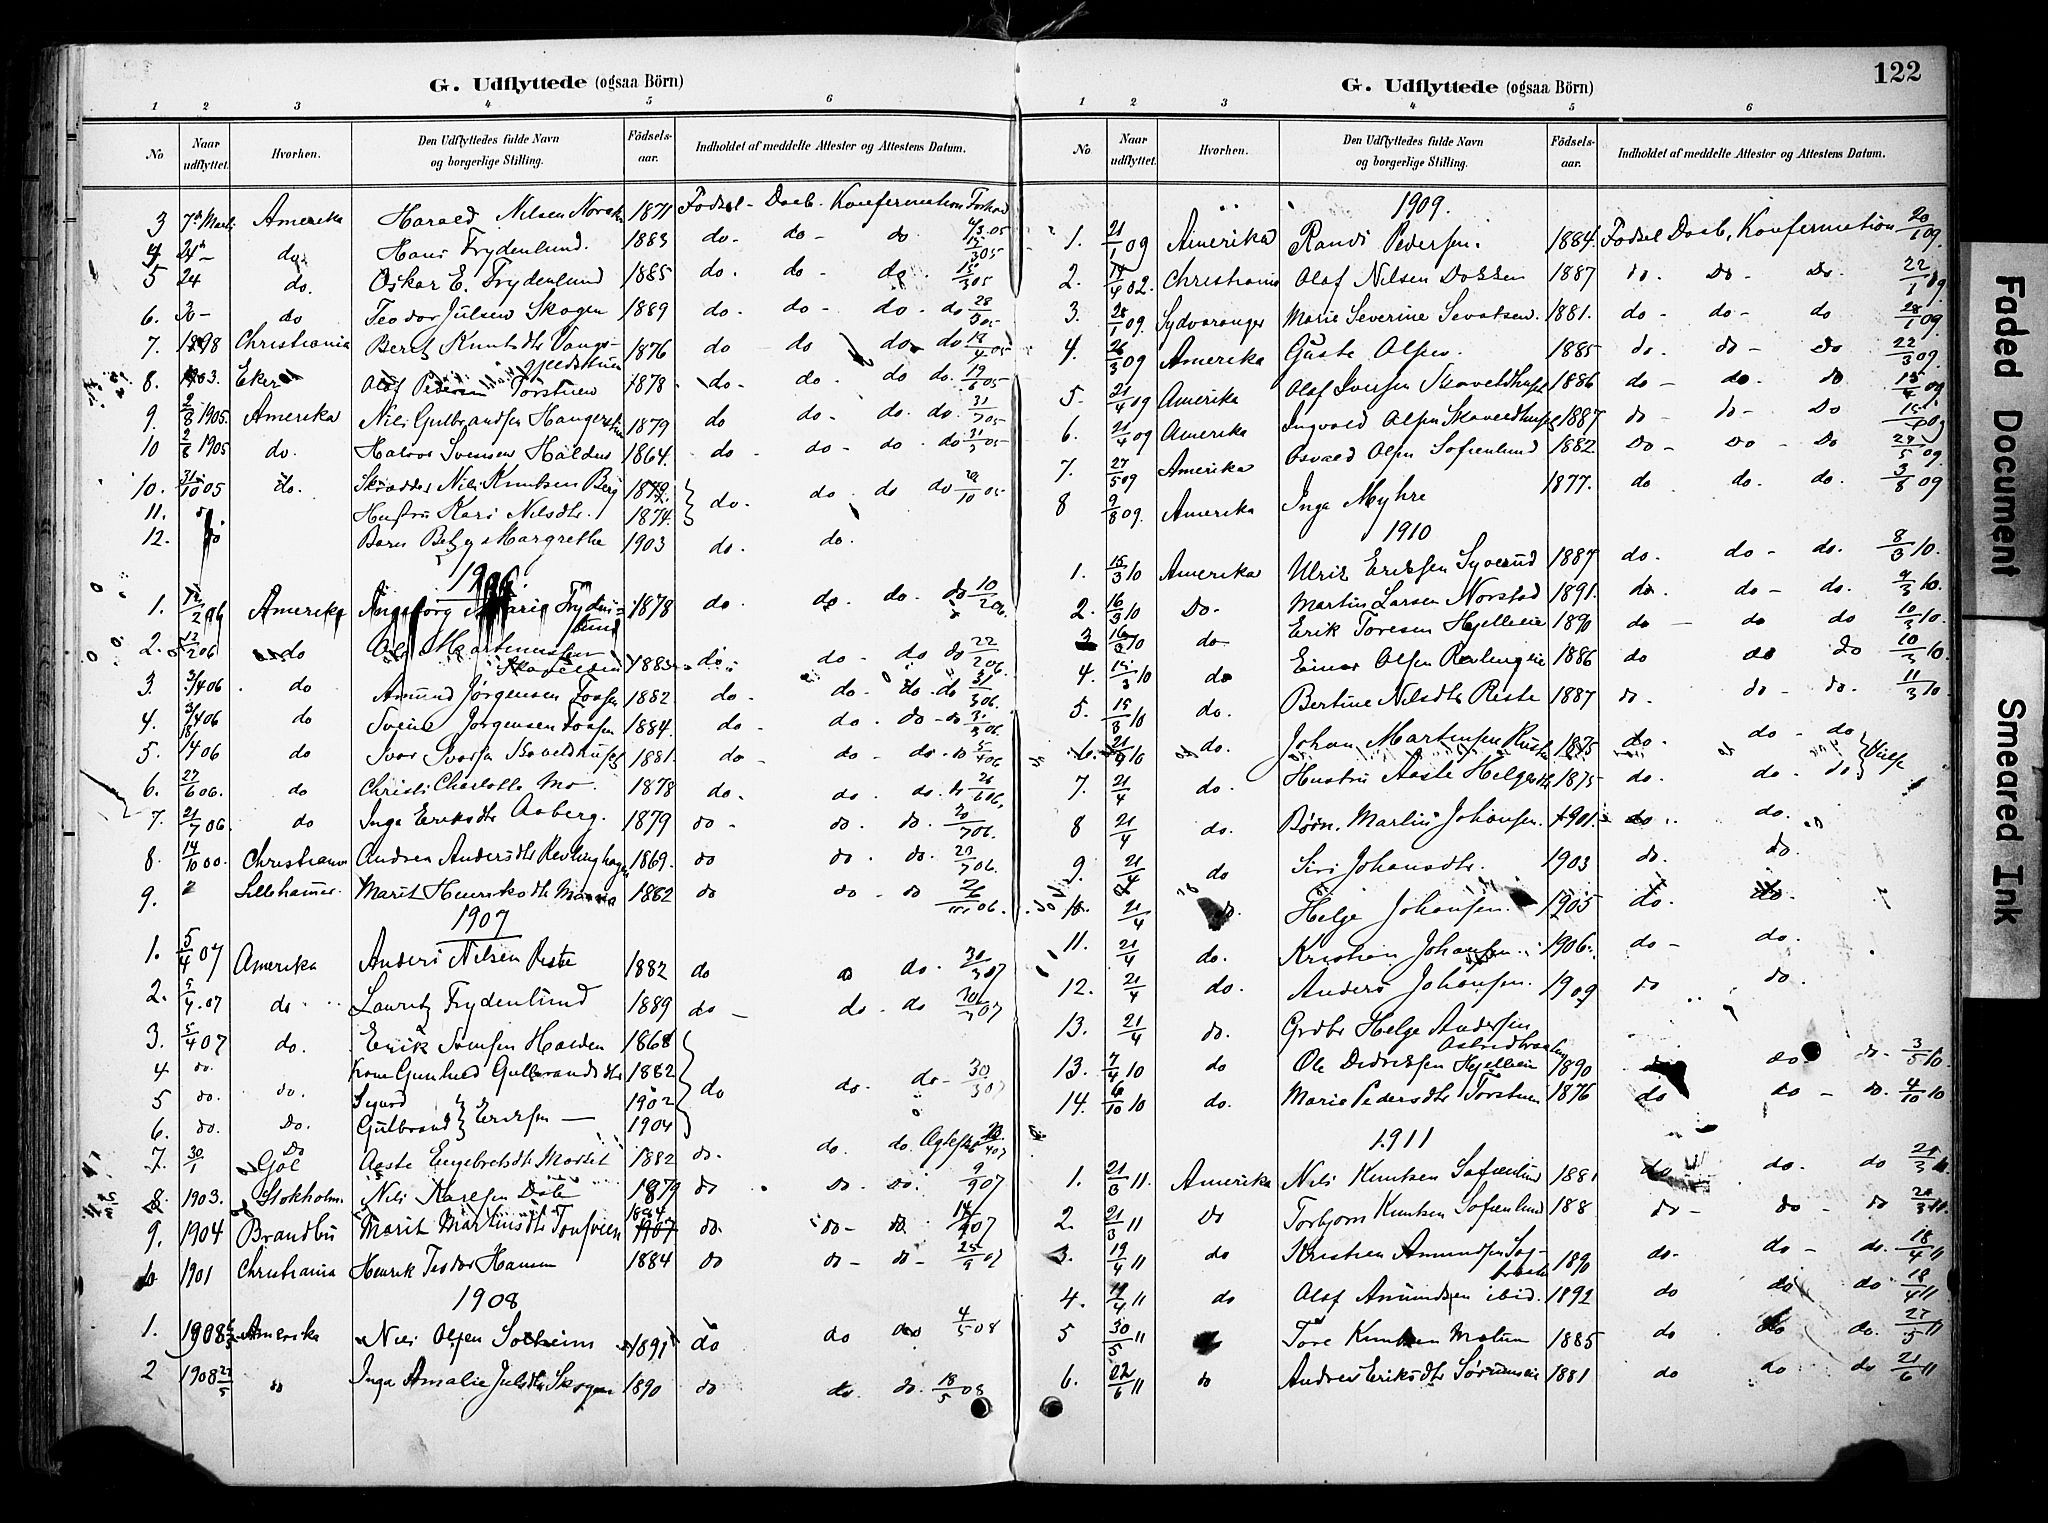 G. Udflyttede (ogsaa Börn)
1 2 3 4 5 6
No Naar udflyttet. Hvorhen. Den Udflyttedes fulde Navn og borgerlige Stilling. Födsels-aar. Indholdet af meddelte Attester og Attestens Datum.
3 7de Marts Amerika Harald Nilsen 1871 Fodsel - Daab. Konfermation
4 24 do Hans Frydenlund. 1883 do - do - do
5 24 do. Oskar E. Frydenlund 1885 do. do - do. 15/3 05
6. 30 - do Teodor Julsen Skogen 1889 do. do - do. do 28/3 05
7. 1898 Christiania Berit Knutsdtr Vangs- 1876 do - do do. do 18/4 05
8. 1903. Eker Olaf Pedersen Torstuen 1878 do - do. do do. 19/6 05
9. 2/8 1905. Amerika Nils Gulbrandsen 1879 do do - do. do. 31/7 05
10 2/8 1905 do. Halvor Svensen Halden 1864. do - do - do. do 31/7 05
10. 31/10 05 do. Skrædder Nils Knutsen Berg 1879. do. do do do 10 05
11. Hustru Kari Nilsdtr. 1874.
12. do Barn Betzy Margrethe 1903 do. do.
1906.
1. 12/2 06 Amerika Ingeborg Marie Fryden= lund 1878 do. do. do. do 10/2 06.
2. 12/2 06 do Ole Martinussen 1883 do do - do do 22/2 06.
3. 3/4 06 do Amund Jørgensen 1882. do. do - do. do 31/3 06.
4. 3/4 06 do Svein Jørgensen 1884. do - do. do - do 31/3 06
5. 18/4 06 do Ivar Ivarsen 1881. do - do - do - do 5/4 06
6. 27/6 06. do Christi Charlotte Mo - 1878 do. do. do. do 26/6 06.
7. 21/7 06. do Inga Eriksdtr Aaberg. 1879 do - do. do. 20/7 06.
8. 14/10 00. Christiania Andrea Andersdtr 1869. do do. do. 23/7 06.
9. Lillehamer. Marit Henriksdtr 1862 do do - do 06.
1907
1. 5/4 07 Amerika Anders Nilsen Piste 1882 do do do. 30/3 07
2. 5/4 07 do. Lauritz Frydenlund 1889 do - do. do 30/3 07
3. 5/4 07 do. Erik Svensen Halden 1868
4 do. Kone Gunhild Gulbrandsdtr 1882 do do. do - 30/3 07
5 do. do. Sigurd 1902
6. do. do. Gulbrand } Eriksen - 1904
7. 30/1 Gol Aaste Engebretsdtr 1882 do. do. do.
8. 1903. Stokholm. Nils Karlsen Dale 1879 do do. do. 9/9 07
9. 1904 Brandbu Marit Martinsdtr 1884. do. do - do. 14/9 07
10 1901 Christiania Henrik Teodor Hansen 1884 do do - do - 25/9 07
1908
1. 1908 Amerika Nils Olsen Solheim 1891 do do do 4/5 08
2 1908 23/5 do Inga Amalie Julsdtr Skogen 1890 do do. do. 18/5 08
G. Udflyttede (ogsaa Börn)
122
1 2 3 4 5 6
No. Naar udflyttet. Hvorhen. Den Udflyttedes fulde Navn og borgerlige Stilling. Födsels-aar. Indholdet af meddelte Attester og Attestens Datum.
1909.
1. 21/1 09 Amerika Randi Pedersen. 1884. Fodsel Daab, Konfermation 20/1 09.
2. 4 02. Christiania Olaf Nilsen Dokken 1887 do. do - do. 22/1 09
3. 28/1 09. Sydvaranger Marie Severine 1881. do - do - do 28/1 09.
4. 26/3 09 Amerika Gusta Olsen. 1885 do. do - do 22/3 09.
5. 21/4 09 Amerika Olaf Iversen 1886 do - do. do 13/4 09
6. 21/4 09 Amerika Ingvald Olsen 1887 do - do - do 15/4 09
7. 27/5 09 Amerika Osvald Olsen Sofienlund 1882. do - do - do 24/5 09.
8 9/8 09. Amerika Inga Myhre 1877. do do. do. 3/8 09
1910
1. 15/3 10 Amerika Ulrik Eriksen Syverud 1887 do. do - do. 8/3 10.
2. 16/3 10 do. Martin Larsen Norstad 1891. do. do - do. 9/3 10.
3 16/3 10 do Erik Toresen 1890 do - do do 10/3 10.
4. 15/3 10 do Einar Olsen 1886 do do do 10/3 10.
5. 15/3 10 do. Bertine Nilsdtr Piste 1887 do. do - do. 11/3 10.
6. 21/4 10 do. Johan Martinsen 1875 do do - do
7. 21/4 do. Hustru Aaste Helgesdtr 1875 do. do. do
8 21/4 do. Børn. Martin Johansen. 1901. do do.
9. 21/4 do Siri Johansdtr. 1903 do. do.
10. 21/4 do. Helge Johansen. 1905 do. do.
11. 21/4 do. Kristian Johansen. 1906. do - do.
12. 21/4 do. Anders Johansen. 1909 do do.
13. 21/4 do. Grdbr Helge Andersen
13. 7/4 10 do Ole Didriksen 1890 do do - 3/5 10
14. 6/10 10 do. Marie Pedersdtr Torstuen 1876 do do - do. 4/10 10
1911
1. 21/3 11. Amerika Nils Knutsen Sofienlund 1881 do do. do 21/3
2. 21/3 11 do Torbjørn Knutsen Sofienlund 188 do - do - do 20/3
3. 19/4 11 do Kristian Amundsen 1890 do. do - do. 18/4 11
4. 19/4 11 do Olaf Amundsen ibid. 1892 do do do. 18/4 11
5 30/5 11 do Tore Knutsen Moltun 1885 do do do. 27/5 11
6. 22/6 11 do Andrea Eriksdtr 1881 do do do 21/6 11
Faded Document
Smeared Ink